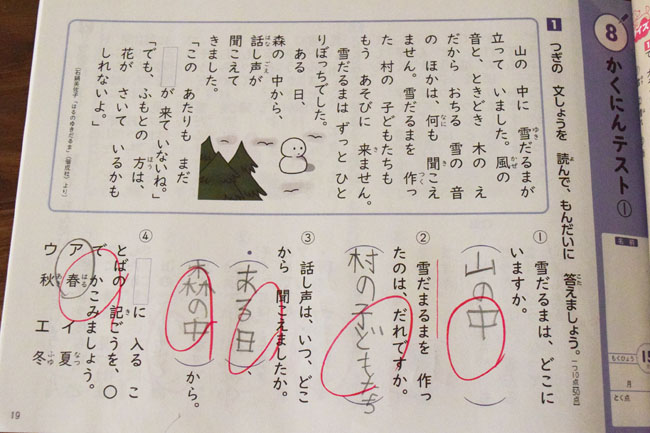 8 かくにんテスト①
もくひょう
15
月
とく点
1 つぎの 文しょうを 読んで、もんだいに 答えましょう。 一つ10点【50点】
山の 中に 雪だるまが
立って いました。風の
音と、ときどき 木の え
だから おちる 雪の 音
の ほかは、何も 聞こえ
ません。雪だるまを 作っ
た 村の 子どもたちも
もう あそびに 来ません。
雪だるまは ずっと ひと
りぼっちでした。
ある 日、
森の 中から、
話し声が
聞こえて
きました。
「この あたりも まだ
が 来て いないね。」
「でも、ふもとの 方は、
花が さいて いるかも
しれないよ。」
(石鍋芙佐子「はるのゆきだるま」〈偕成社〉より)
① 雪だるまは、どこに
いますか。
(山の中)
② 雪だまるまを 作っ
たのは、だれですか。
(村の子どもたち)
③ 話し声は、いつ、どこ
から 聞こえましたか。
(ある日)、
(森の中)から。
④ に 入る こ
とばの 記ごうを、○
で かこみましょう。
ア 春 イ 夏
ウ 秋 エ 冬
19